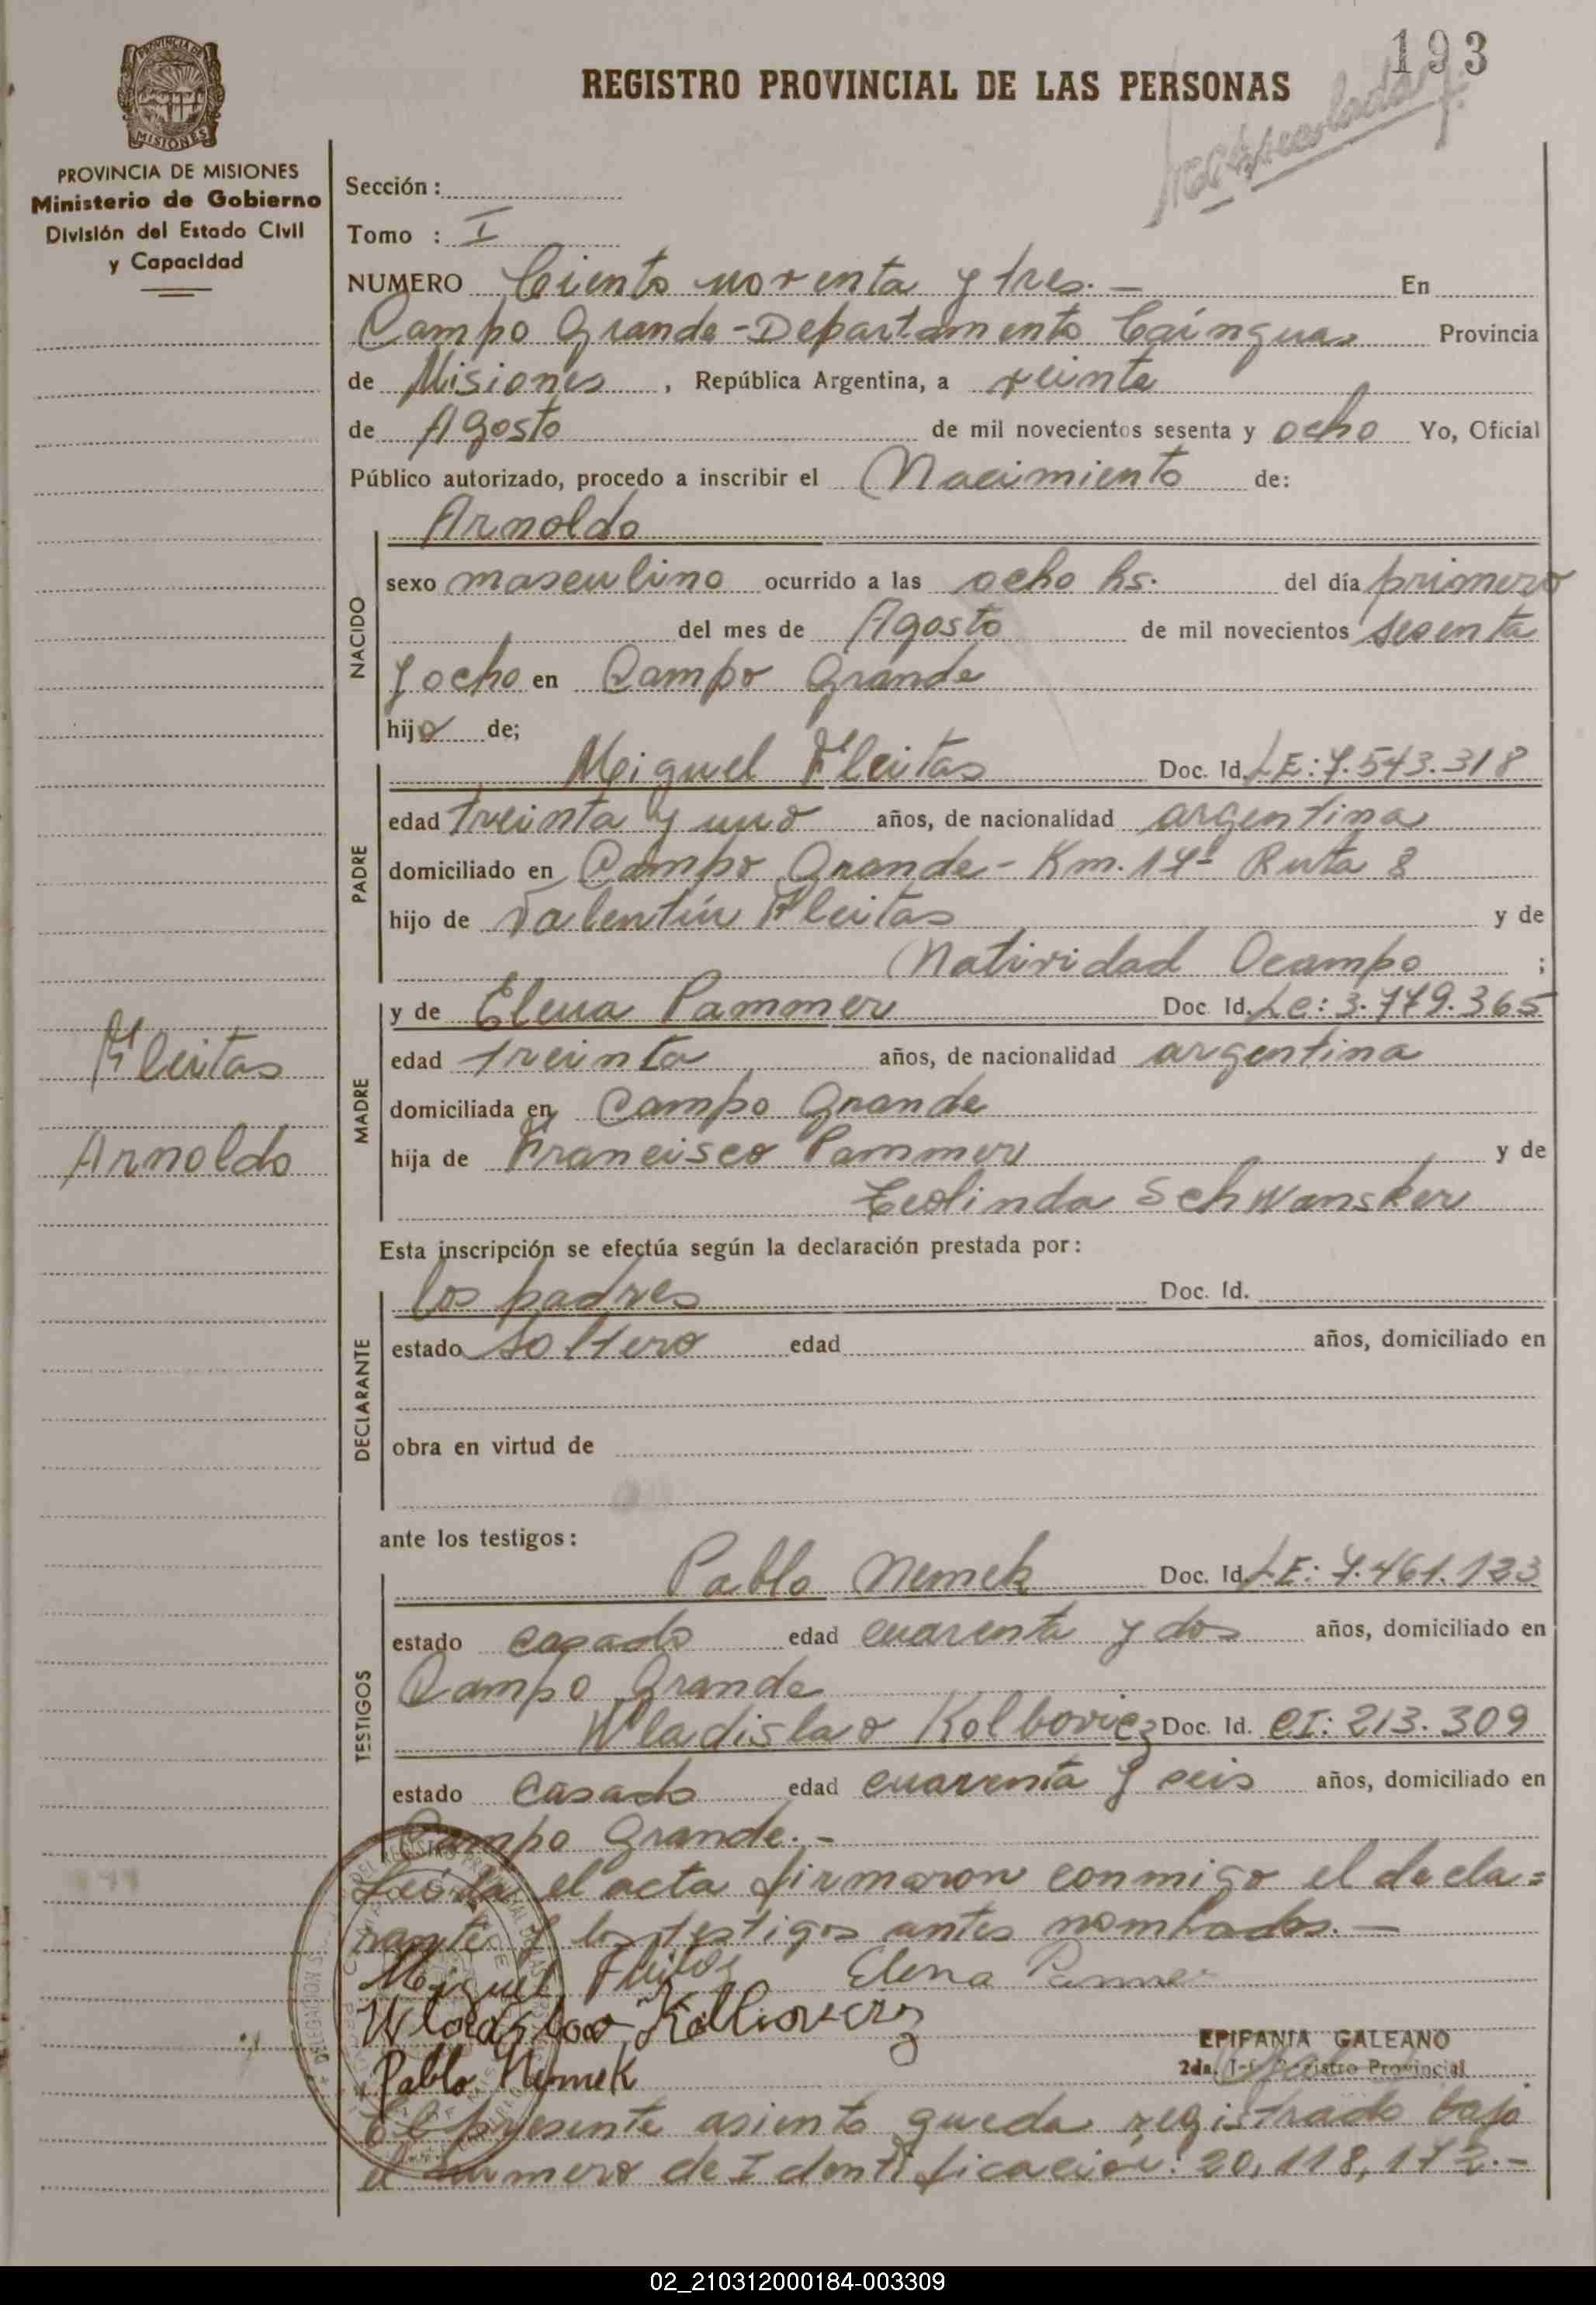 193
REGISTRO PROVINCIAL DE LAS PERSONAS
PROVINCIA DE
MISIONES
PROVINCIA DE MISIONES
Ministerio de Gobierno
División del Estado Civil
y Capacidad
Sección :
Tomo : I
NUMERO Ciento noventa y tres.- En
Campo Grande-Departamento Cainguas Provincia
de Misiones , República Argentina, a veinte
de Agosto de mil novecientos sesenta y ocho Yo, Oficial
Público autorizado, procedo a inscribir el Nacimiento de:
Arnoldo
NACIDO
sexo masculino ocurrido a las ocho hs. del día primero
del mes de Agosto de mil novecientos sesenta
y ocho en Campo Grande
hijo de;
PADRE
Miguel Fleitas Doc. Id. LE: 7.543.318
edad treinta y uno años, de nacionalidad argentina
domiciliado en Campo Grande - Km. 17- Ruta 8
hijo de Valentín Fleitas y de
Natividad Ocampo ;
MADRE
y de Elena Pammer Doc. Id. Lc: 3.779.365
edad treinta años, de nacionalidad argentina
domiciliada en Campo Grande
hija de Francisco Pammer y de
Teolinda Schwansker
Fleitas
Arnoldo
Esta inscripción se efectúa según la declaración prestada por :
DECLARANTE
los padres Doc. Id.
estado soltero edad años, domiciliado en
obra en virtud de
ante los testigos :
TESTIGOS
Pablo Nemek Doc. Id. LE: 7.461.123
estado casado edad cuarenta y dos años, domiciliado en
Campo Grande
Wladislao Kolbovicz Doc. Id. CI: 213.309
estado casado edad cuarenta y seis años, domiciliado en
Campo Grande.-
Leída el acta firmaron conmigo el decla=
rante y los testigos antes nombrados.-
Miguel Fleitas Elena Pammer
Pablo Nemek
EPIFANIA GALEANO
2da. Registro Provincial
El presente asiento queda registrado bajo
el numero de Identificación: 20,118,172.-
02_210312000184-003309